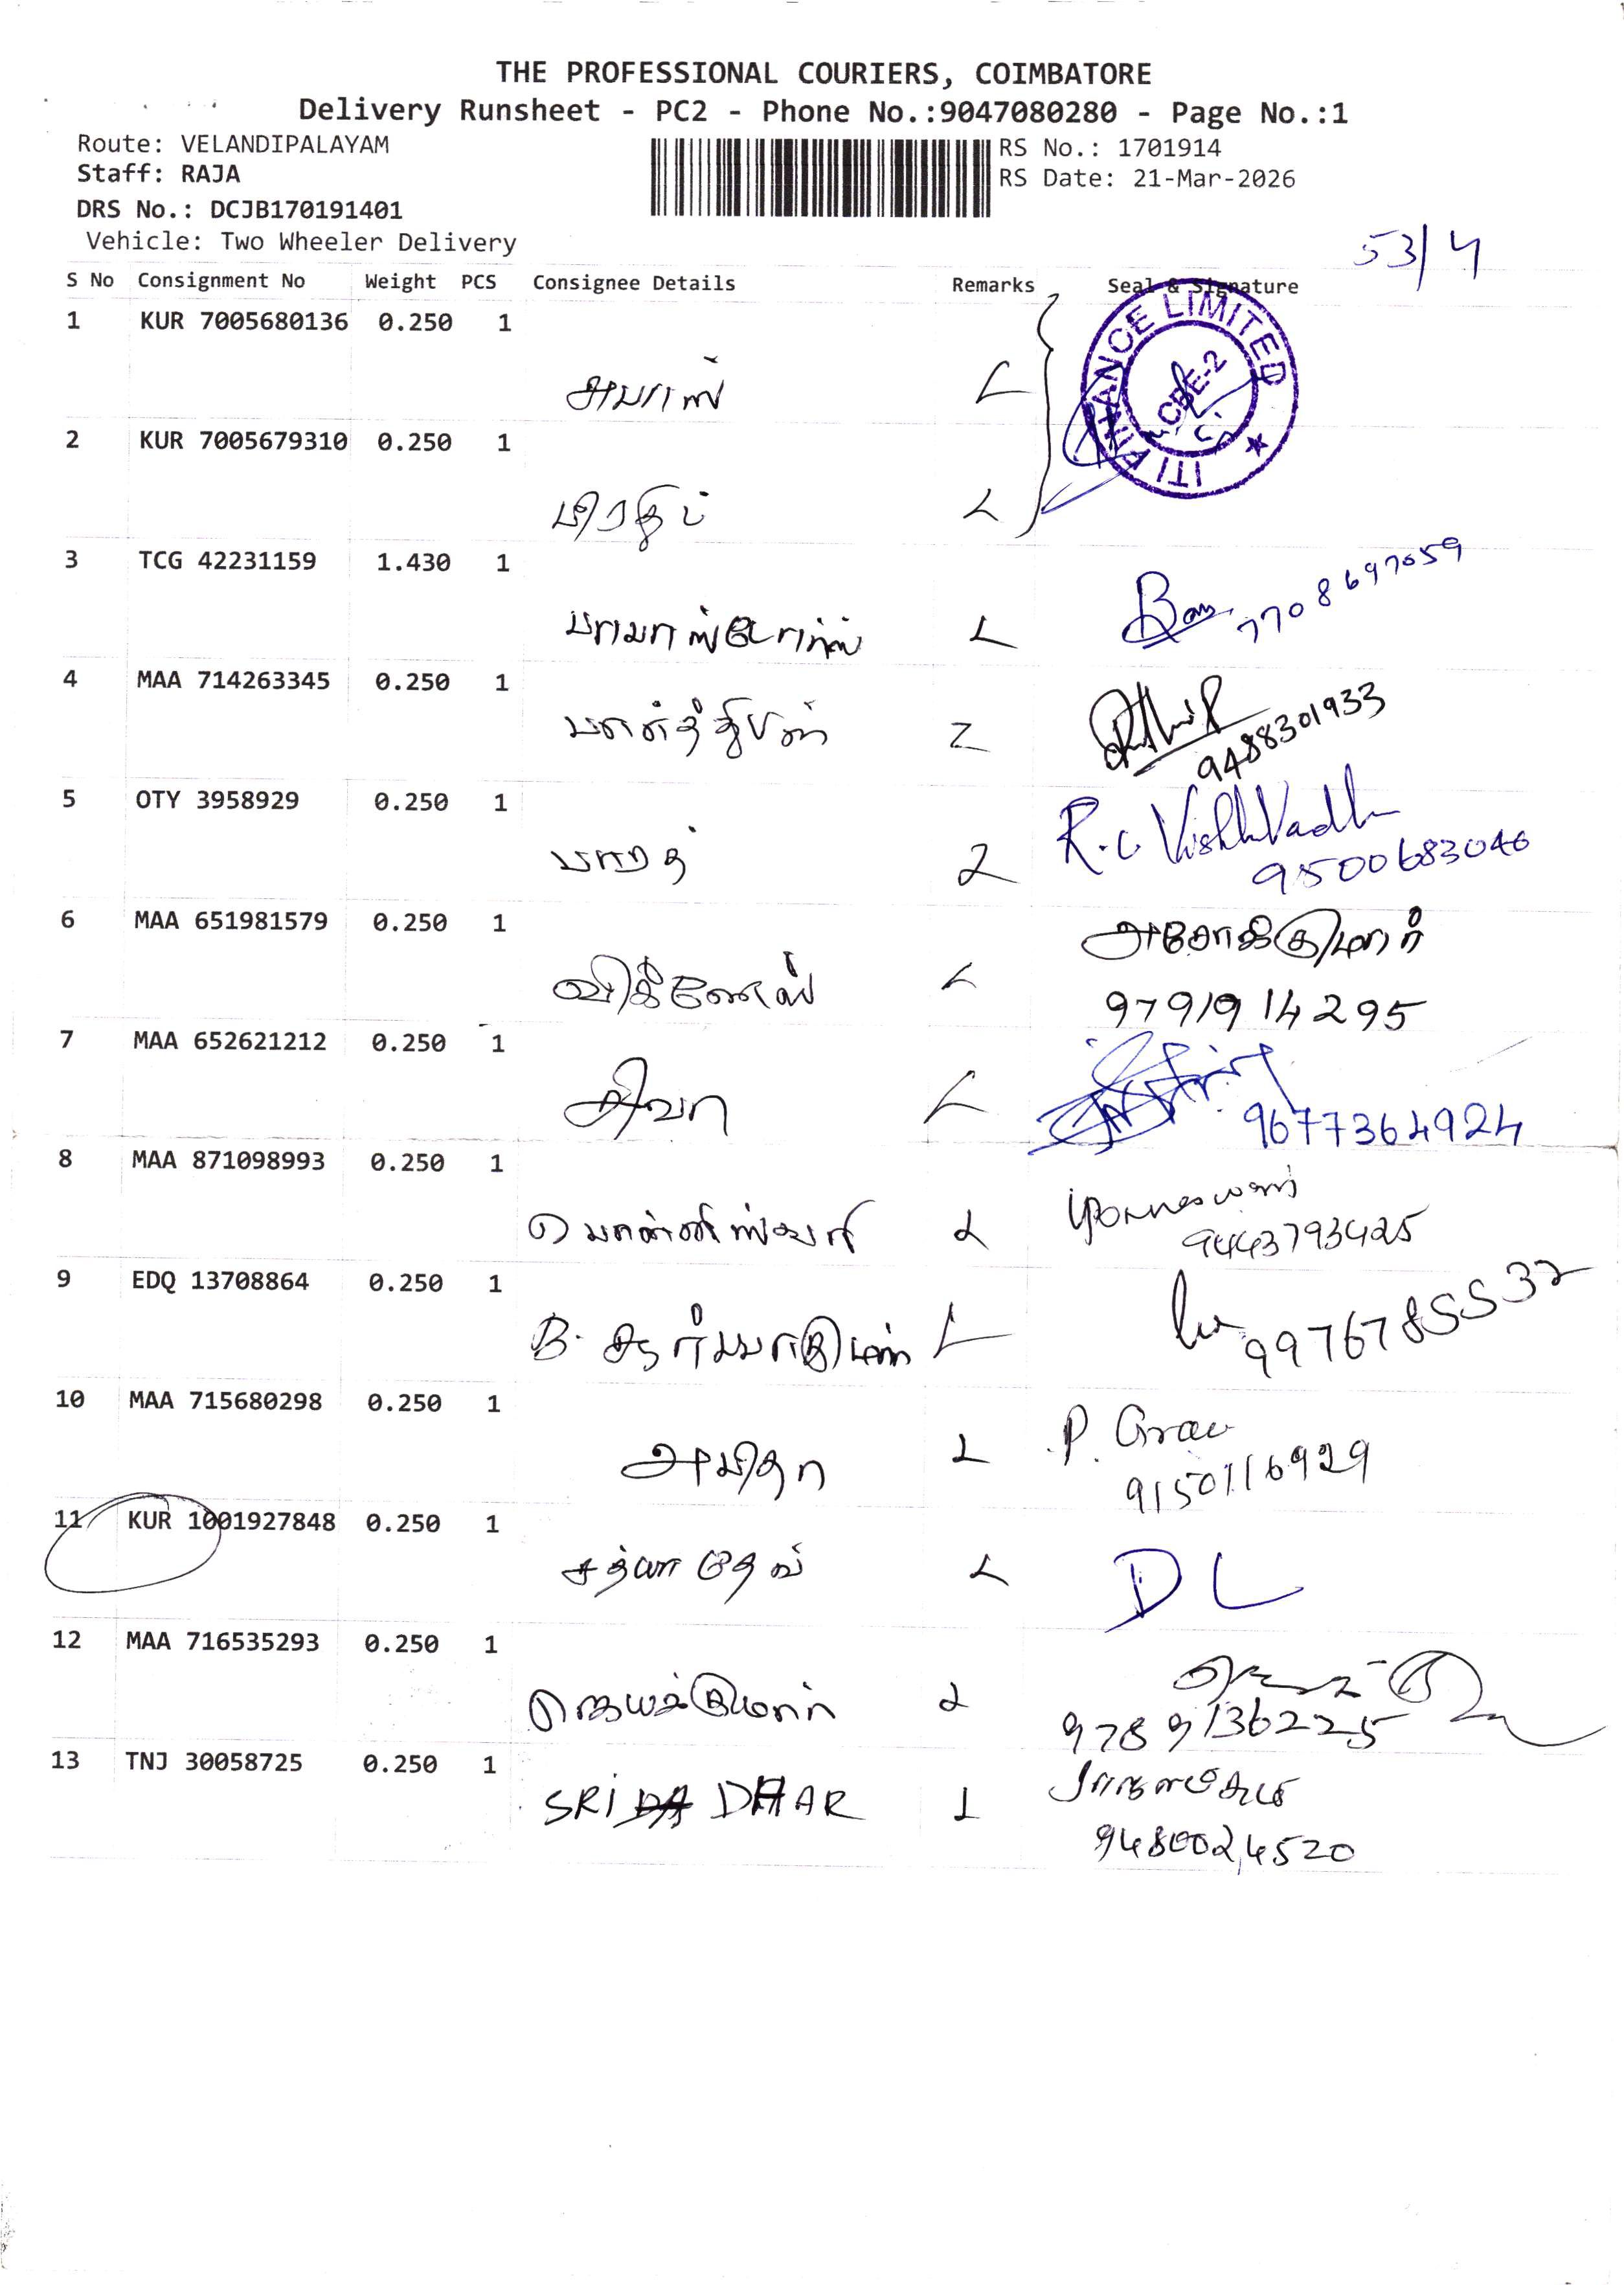 THE PROFESSIONAL COURIERS, COIMBATORE
Delivery Runsheet - PC2 - Phone No.:9047080280 - Page No.:1
Route: VELANDIPALAYAM
RS No.: 1701914
Staff: RAJA
RS Date: 21-Mar-2026
DRS No.: DCJB170191401
Vehicle: Two Wheeler Delivery
53/4
S No Consignment No Weight PCS Consignee Details Remarks Seal & Signature
1 KUR 7005680136 0.250 1
ITI FINANCE LIMITED
CBE-2
2 KUR 7005679310 0.250 1
3 TCG 42231159 1.430 1
7708697059
4 MAA 714263345 0.250 1
பார்த்திபன்
9488301933
5 OTY 3958929 0.250 1
பாரத்
9500683046
6 MAA 651981579 0.250 1
அசோக்குமார்
விக்னேஷ்
9791914295
7 MAA 652621212 0.250 1
சிவா
9677364924
8 MAA 871098993 0.250 1
9443793425
9 EDQ 13708864 0.250 1
B.
9976785532
10 MAA 715680298 0.250 1
அபிதா
9150116929
11 KUR 1001927848 0.250 1
சத்யா தேவ்
DL
12 MAA 716535293 0.250 1
ஜெயக்குமார்
9789136225
13 TNJ 30058725 0.250 1
SRI DHAR
9480024520